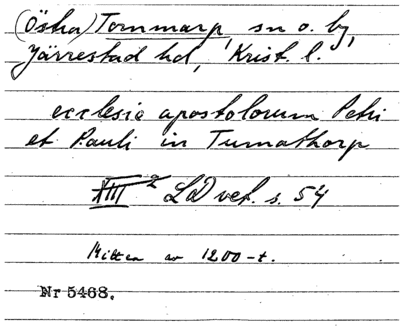 (Östra) Tommarp, sn o. by,
Järrestad hd, Krist. l.
ecclesie apostolorum Petri
et Pauli in Tumathorp
XIII 2 LD vet. s. 54
Mitten av 1200-t.
Nr 5468.